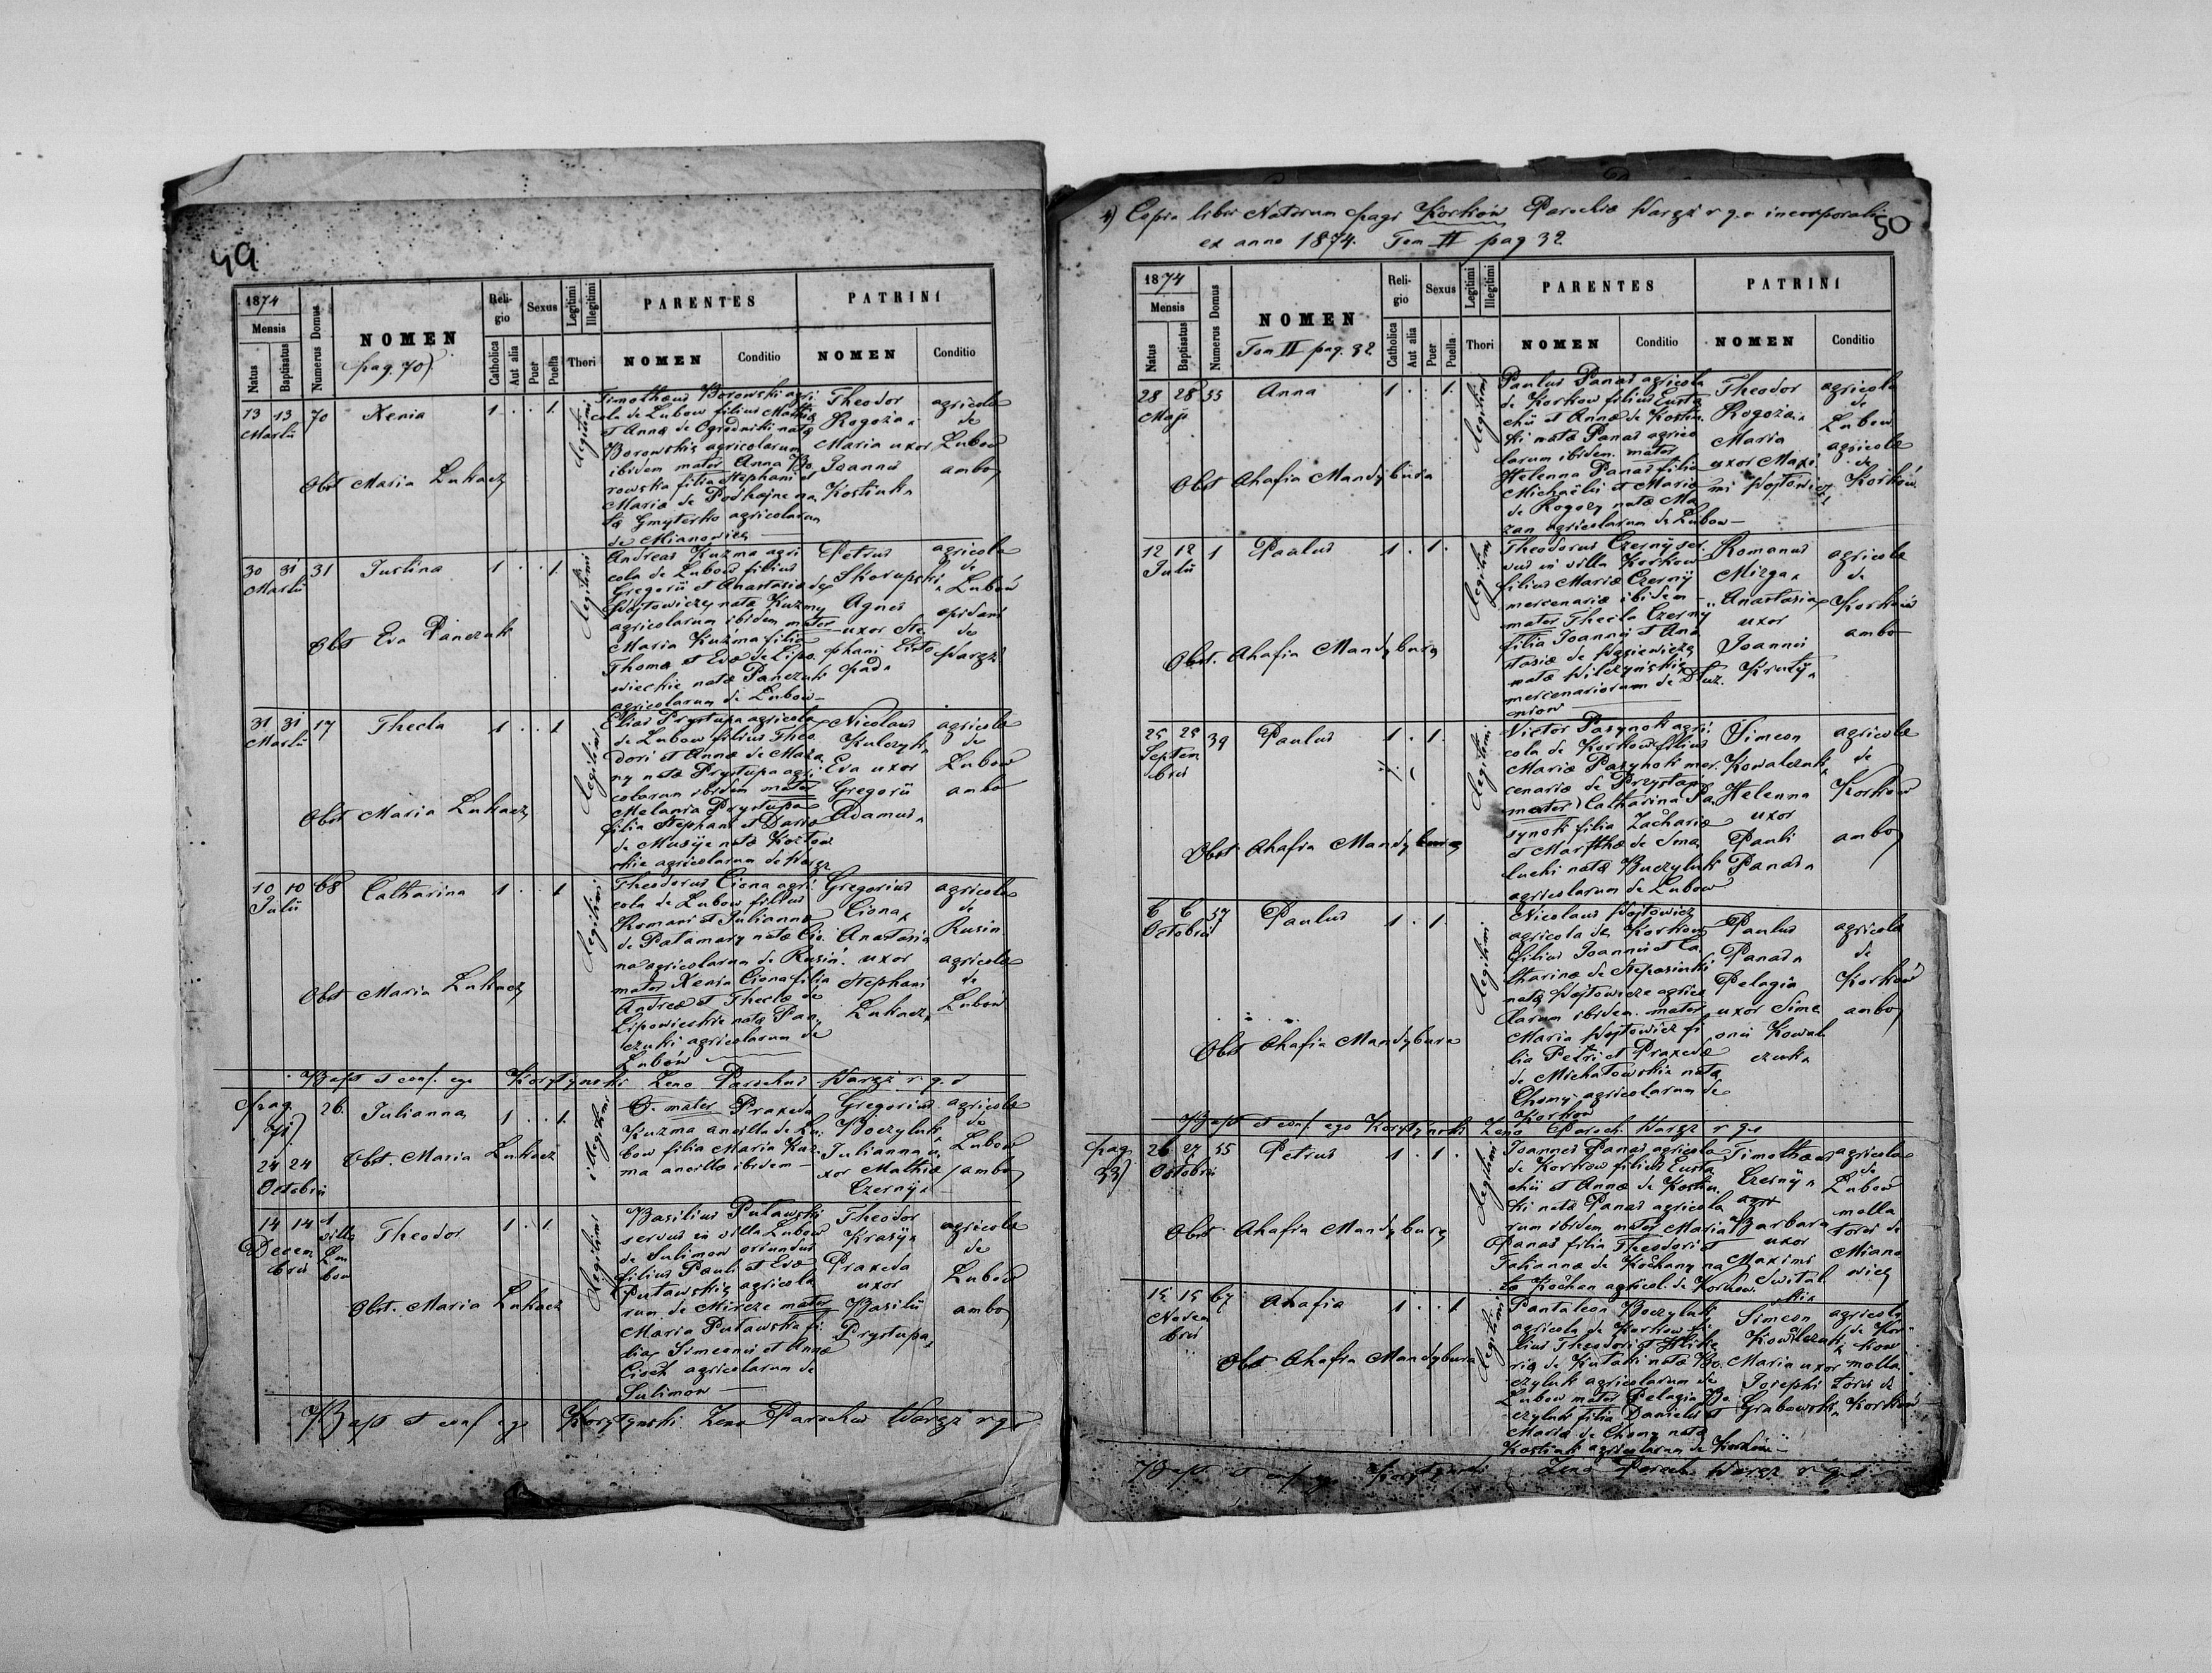 49
1874
Mensis
Natus
Baptisatus
Numerus Domus
NOMEN
pag. 70)
Reli-
gio
Catholica
Aut alia
Sexus
Puer
Puella
Legitimi
Illegitimi
Thori
PARENTES
NOMEN
Conditio
PATRINI
NOMEN
Conditio
13 13 70 Xenia 1 . . 1.
Martii
Legitimi
Obst Maria Lukacz
Timotheus Borowski agri
cola de Lubow filius Mathiæ
et Annæ de Ogrodniki natæ
Borowskie agricolarum
ibidem mater Anna Bo
rowska filia Stephani et
Mariæ de Podhajne na
tæ Gmyterko agricolarum
de Mianowicz
Theodor
Rogoza
Maria uxor
Joannis
Kostiuk
agricolæ
de
Lubow
ambo
30 31 31 Justina 1 . . 1.
Martii
Legitimi
Obst Eva Panczuk
Andreas Kuzma agri
cola de Lubow filius
Gregorii et Anastasiæ de
Wojtowiczy natæ Kuzmy
agricolarum ibidem mater
Maria Kuzma filia
Thomæ et Evæ de Lipo
wieckie natæ Panczuk
agricolarum de Lubow
Petrus
Skorupski
Agnes
uxor Ste
phani Listo
pad
agricola
de
Lubów
opidani
de
Waręż
31 31 17 Thecla 1 . . 1
Martii
Legitimi
Obst Maria Lukacz
Elias Prystupa agricola
de Lubow filius Theo
dori et Annæ de Maza
ny natæ Prystupa agri
colarum ibidem mater
Melania Prystupa
filia Stephani et Dariæ
de Musije natæ Kozłow
skie agricolarum de Waręż
Nicolaus
Kulczyk
Eva uxor
Gregorii
Adamus
agricolæ
de
Lubow
ambo
10 10 68 Catharina 1 . . 1
Julii
Legitimi
Obst Maria Lukacz
Theodorus Ciona agri
cola de Lubow filius
Romani et Juliannæ
de Patamary natæ Cio
na agricolarum de Rusin
mater Xenia Ciona filia
Andreæ et Theclæ de
Lipowieckie natæ Pan
czuki agricolarum de
Lubów
Gregorius
Ciona
Anastasia
uxor
Stephani
Lukacz
agricola
de
Rusin
agricolæ
de
Lubów
Bapt et conf. ego Korstynski Zeno Parochus Waręż r. g. c
pag.
71)
26. Julianna 1 . . 1.
24 24
Octobris
illegitimi
Obst. Maria Lukacz
O. mater Praxeda
Kuzma ancilla de Lu
bow filia Maria Kuz
ma ancilla ibidem
Gregorius
Boczyluk
Julianna u
xor Mathiæ
Czernÿ
agricolæ
de
Lubow
ambo
14 14 1 Theodor 1 . 1.
Decem
bris
villa
Lu
bow
Legitimi
Obst. Maria Lukacz
Basilius Puławski
servus in villa Lubow
de Sulimow oriundus
filius Pauli et Evæ
Puławskie agricola
rum de Mircze mater
Maria Puławska fi
lia Simeonis et Annæ
Cioch agricolarum de
Sulimow
Theodor
Krasÿ
Praxeda
uxor
Basilii
Prystupa
agricolæ
de
Lubow
ambo
Bapt et conf ego Korstynski Zeno Parochus Waręż r g c
4) Copia libri Natorum pagi Korków Parochiæ Waręż r. g. c incorporati
ex anno 1874. Tom II pag 32
50
1874
Mensis
Natus
Baptisatus
Numerus Domus
NOMEN
Tom II pag. 32
Reli-
gio
Catholica
Aut alia
Sexus
Puer
Puella
Legitimi
Illegitimi
Thori
PARENTES
NOMEN
Conditio
PATRINI
NOMEN
Conditio
28 28 55 Anna 1 . . 1.
Maji
Legitimi
Obst Ahafia Mandybura
Paulus Panas agricola
de Korkow filius Eusta
chii et Annæ de Kostiu
ki natæ Panas agrico
larum ibidem. mater
Helenna Panas filia
Michaëlis et Mariæ
de Rogozy natæ Ma
zan agricolarum de Lubow
Theodor
Rogoza
Maria
uxor Maxi
mi Wojtowicz
agricola
de
Lubow
agricolæ
de
Korków
12 12 1 Paulus 1 . 1.
Julii
Legitimi
Obst. Ahafia Mandybura
Theodorus Czernÿ ser
vus in villa Korkow
filius Mariæ Czernÿ
mercenariæ ibidem
mater Thecla Czernÿ
filia Joannis et Ana
stasiæ de Wasiewicze
natæ Wilczyńskie
mercenariorum de Dłuż
niow
Romanus
Mizga
Anastasia
uxor
Joannis
Krutÿ
agricolæ
de
Korków
ambo
25 25 39 Paulus 1 . 1.
Septem
bris
Legitimi
Obst Ahafia Mandybura
Victor Pasynok agri
cola de Korkow filius
Mariæ Pasynok mer
cenariæ de Przystaje
mater Catharina Pa
synok filia Zachariæ
et Marthæ de Sma
luchi natæ Buczyluk
agricolarum de Lubow
Simeon
Kowalczuk
Helenna
uxor
Pauli
Panas
agricolæ
de
Korkow
ambo
6 6 57 Paulus 1 . 1.
Octobris
Legitimi
Obst Ahafia Mandybura
Nicolaus Wojtowicz
agricola de Korkow
filius Joannis et Ca
tharinæ de Stepasiuki
natæ Wojtowicze agrico
larum ibidem. mater
Maria Wojtowicz fi
lia Petri et Praxedæ
de Michałowskie natæ
Chomy agricolarum de
Korkow
Paulus
Panas
Pelagia
uxor Sime
onis Kowal
czuk
agricolæ
de
Korkow
ambo
Bapt et conf. ego Korstynski Zeno Paroch Waręż r g c
pag.
33)
26 27 55 Petrus 1 . 1.
Octobris
Legitimi
Obst. Ahafia Mandybura
Joannes Panas agricola
de Korkow filius Eusta
chii et Annæ de Kostiu
ki natæ Panas agricola
rum ibidem mater Maria
Panas filia Theodori et
Tatiannæ de Kochany na
tæ Kochan agricol. de Korkow
Timotheus
Czernÿ
agri
Barbara
uxor
Maximi
Swital
ski
agricola
de
Lubow
molla
toris de
Miano
wicz
15 15 67 Ahafia 1 . . 1
Novem
bris
Legitimi
Obst Ahafia Mandybura
Pantaleon Boczyluk
agricola de Korkow fi
lius Theodori et
riæ de Kutaki natæ Bo
czyluk agricolarum de
Lubow mater Pelagia Bo
czyluk filia Danielis et
Mariæ de Chomy natæ
Kostiuk agricolarum de Korkow
Simeon
Kowalczuk
Maria uxor
Josephi
Grabowski
agricola
de Kor
kow
molla
toris de
Korków
Bapt et conf. ego Korstynski Zeno Paroch Waręż r g c